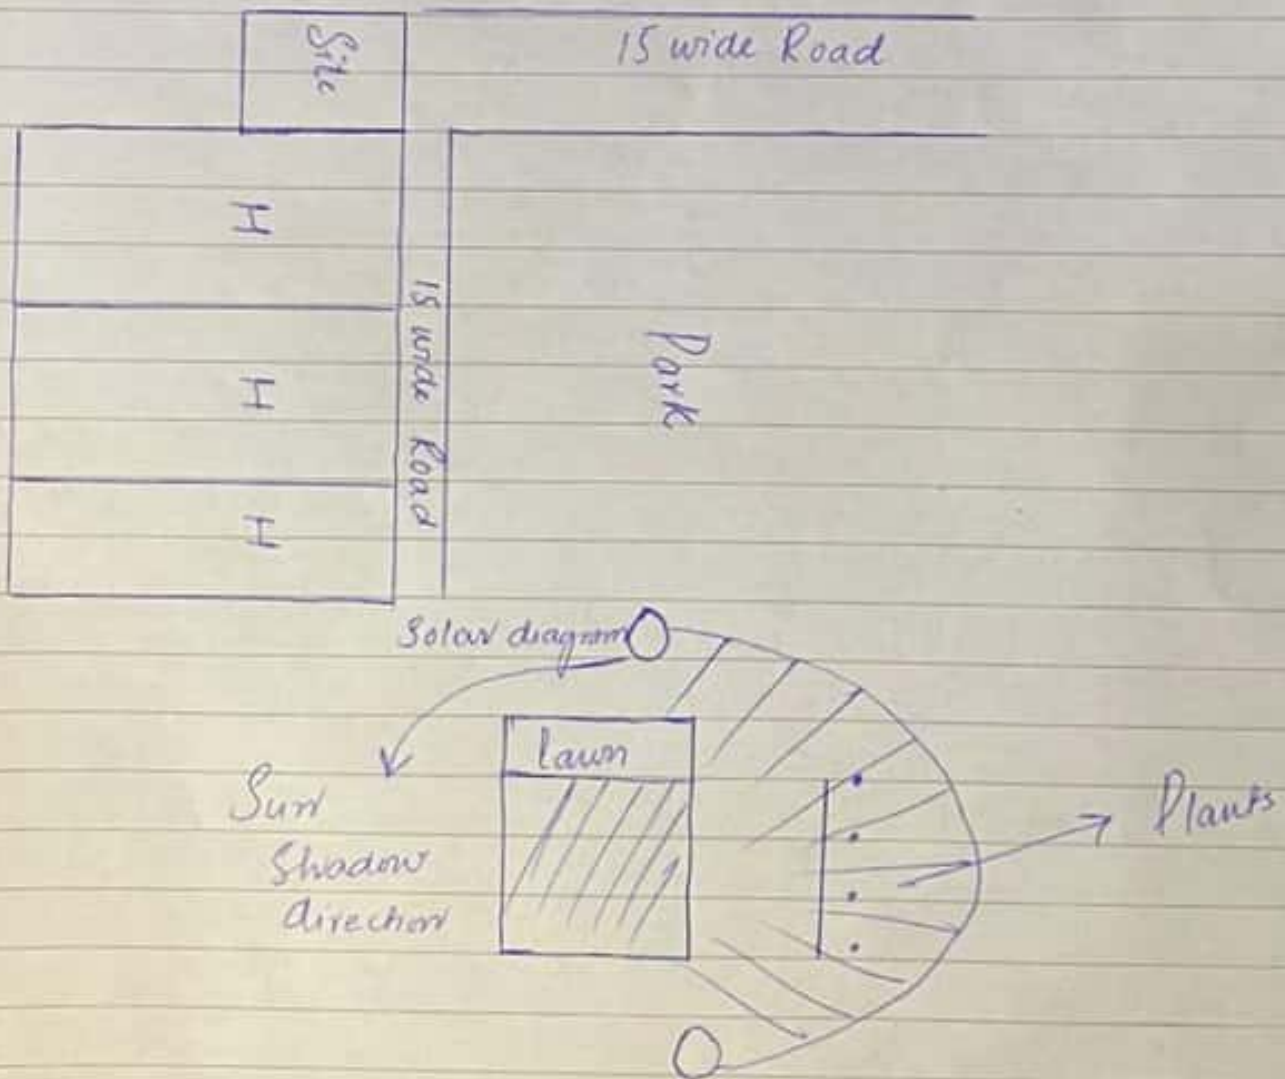 Site
15 wide Road
H
H
H
15 wide Road
Park
Solar diagram
Lawn
Sun
Shadow
direction
Plants